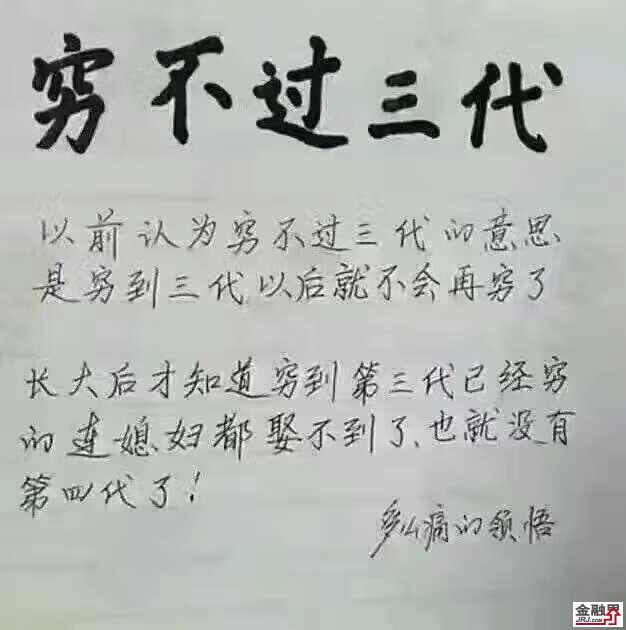 穷不过三代
以前认为穷不过三代的意思
是穷到三代以后就不会再穷了
长大后才知道穷到第三代已经穷
的连媳妇都娶不到了、也就没有
第四代了!
多么痛的领悟
金融界
JRJ.COM